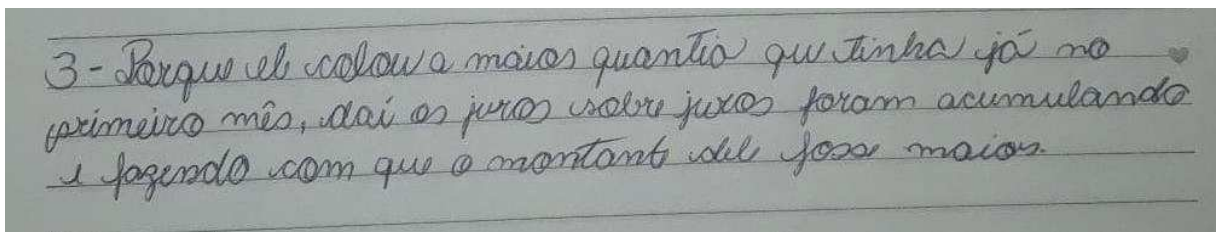 3- Porque ele colou a maior quantia que tinha já no
primeiro mês, daí os juros sobre juros foram acumulando
e fazendo com que o montante dele fosse maior.